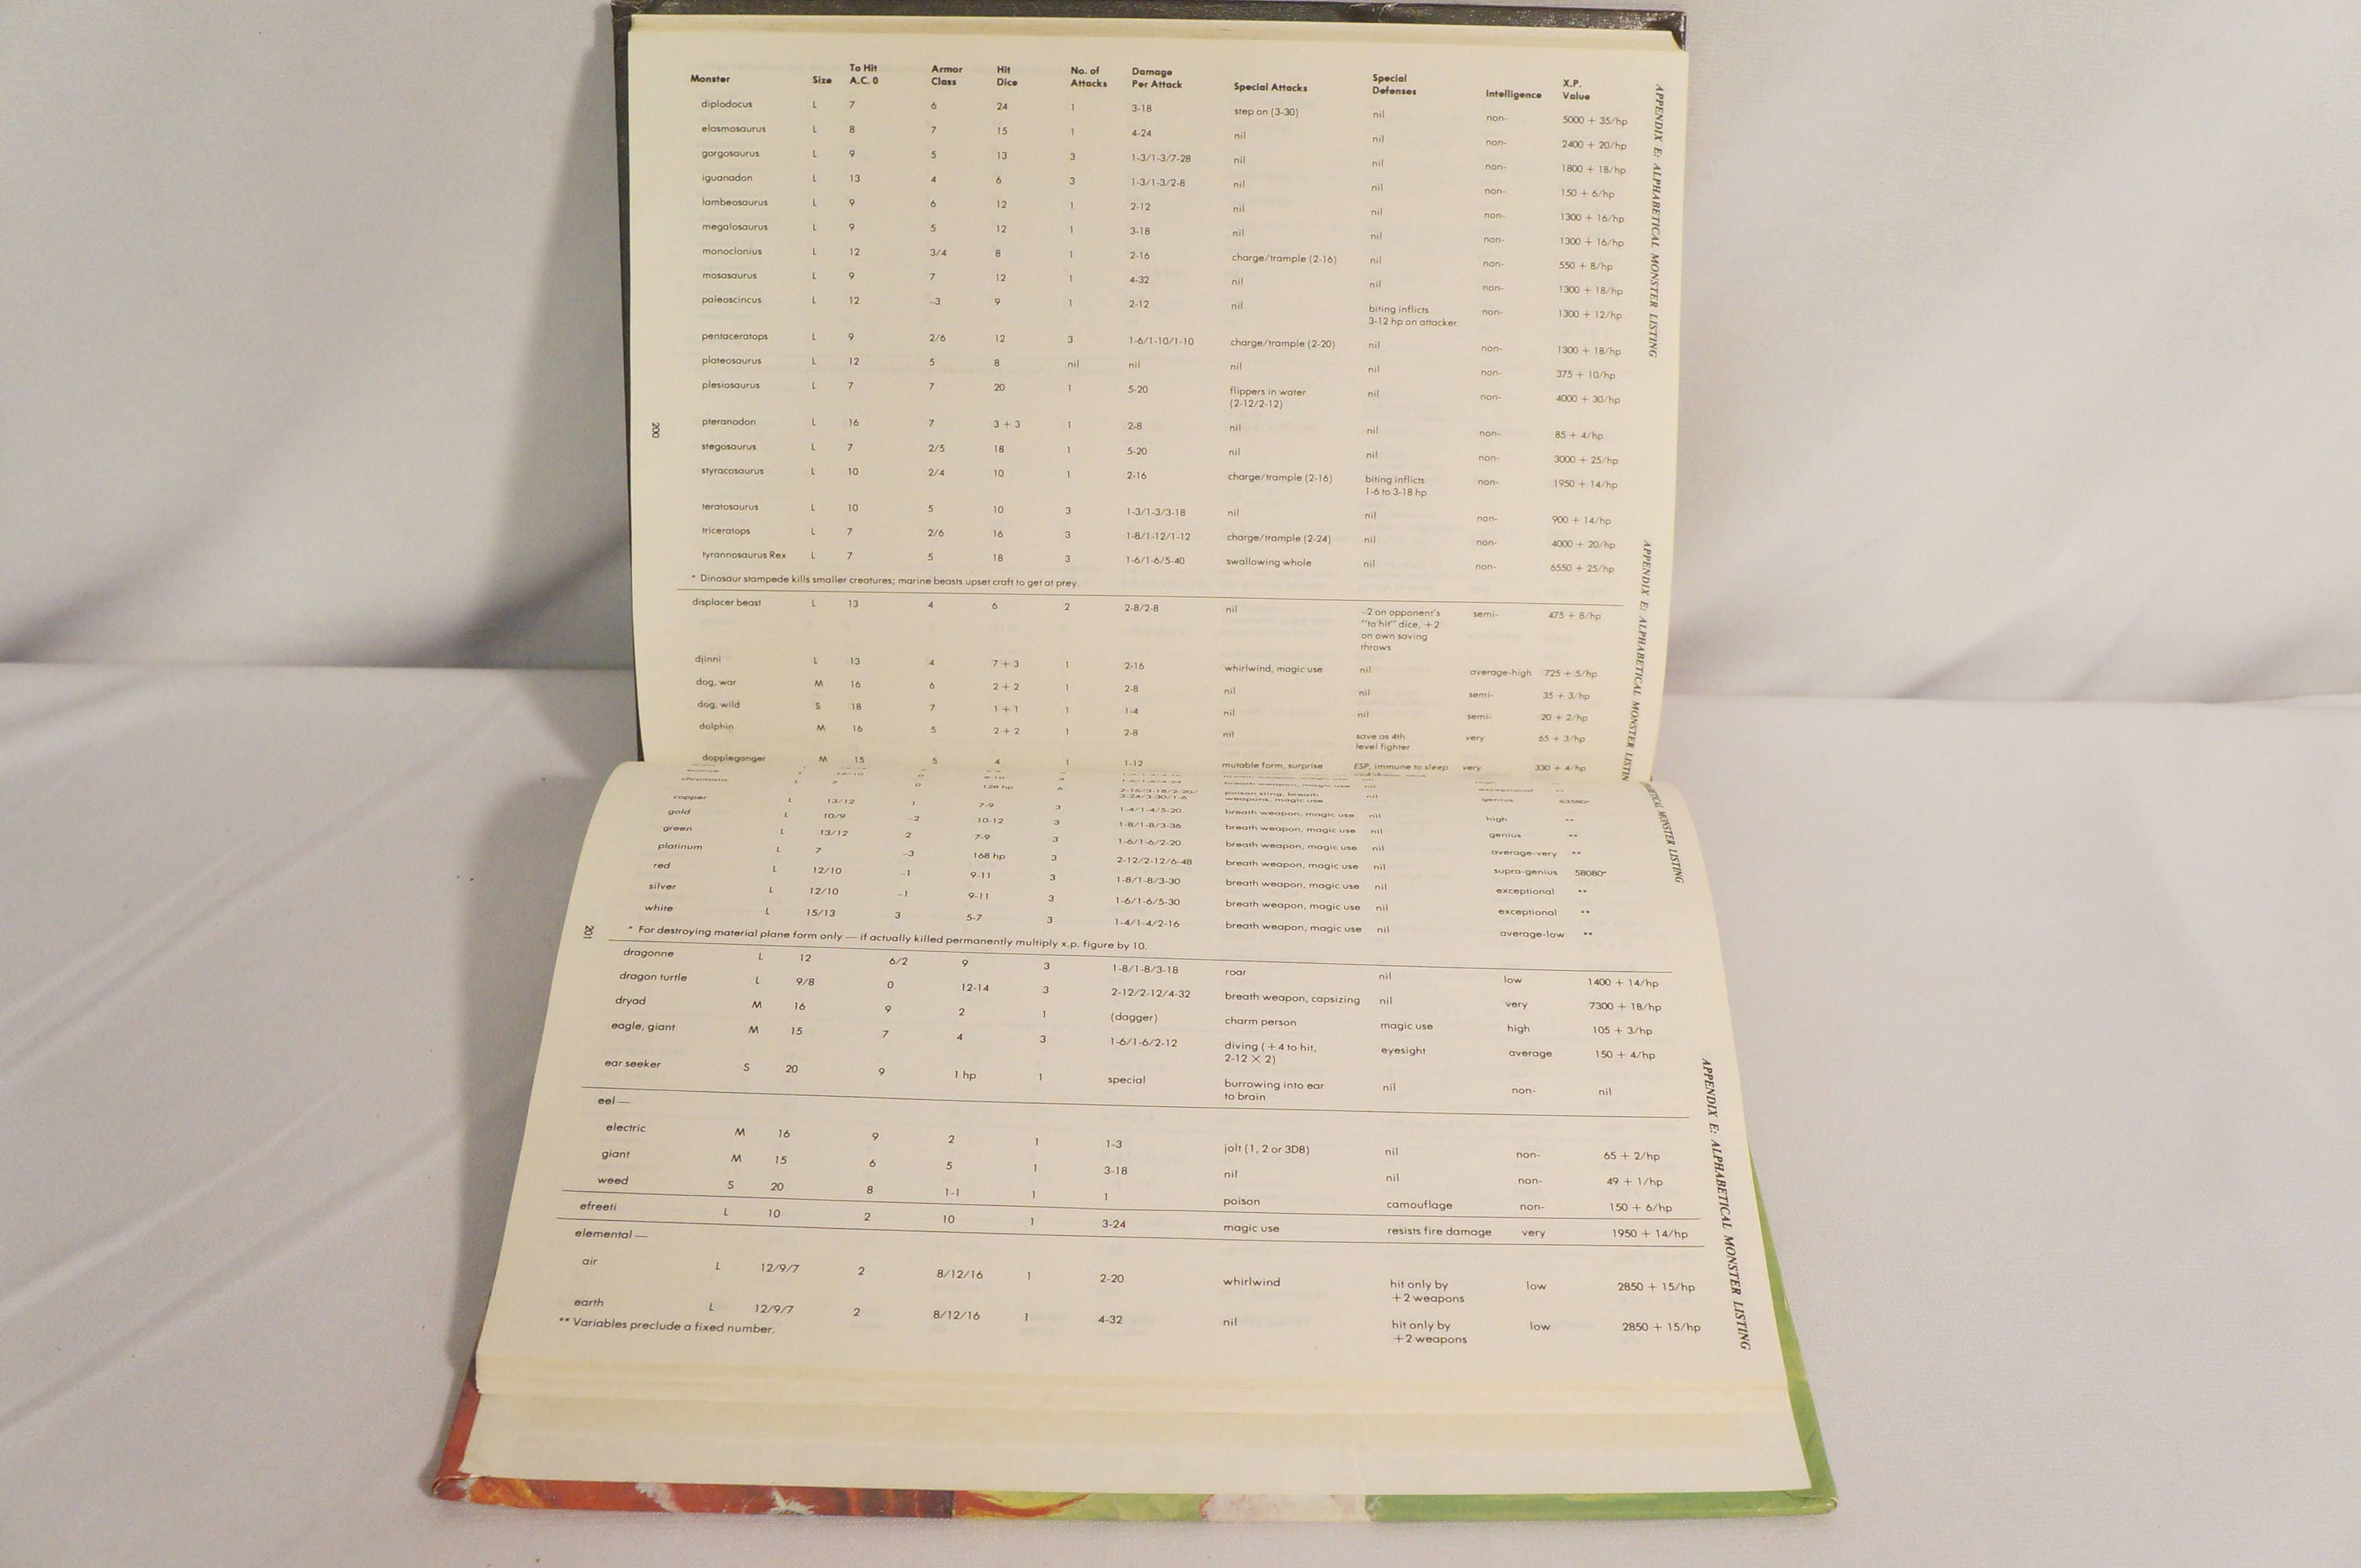 Monster Size To Hit A.C. 0 Armor Class Hit Dice No. of Attacks Damage Per Attack Special Attacks Special Defenses Intelligence X.P. Value
diplodocus L 7 6 24 1 3-18 step on (3-30) nil non- 5000 + 35/hp
elasmosaurus L 8 7 15 1 4-24 nil nil non- 2400 + 20/hp
gorgosaurus L 9 5 13 3 1-3/1-3/7-28 nil nil non- 1800 + 18/hp
iguanadon L 13 4 6 3 1-3/1-3/2-8 nil nil non- 150 + 6/hp
lambeosaurus L 9 6 12 1 2-12 nil nil non- 1300 + 16/hp
megalosaurus L 9 5 12 1 3-18 nil nil non- 1300 + 16/hp
monoclonius L 12 3/4 8 1 2-16 charge/trample (2-16) nil non- 550 + 8/hp
mosasaurus L 9 7 12 1 4-32 nil nil non- 1300 + 18/hp
paleoscincus L 12 -3 9 1 2-12 nil biting inflicts non- 1300 + 12/hp
3-12 hp on attacker
pentaceratops L 9 2/6 12 3 1-6/1-10/1-10 charge/trample (2-20) nil non- 1300 + 18/hp
plateosaurus L 12 5 8 nil nil nil nil non- 375 + 10/hp
plesiosaurus L 7 7 20 1 5-20 flippers in water nil non- 4000 + 30/hp
(2-12/2-12)
pteranodon L 16 7 3 + 3 1 2-8 nil nil non- 85 + 4/hp
stegosaurus L 7 2/5 18 1 5-20 nil nil non- 3000 + 25/hp
styracosaurus L 10 2/4 10 1 2-16 charge/trample (2-16) biting inflicts non- 1950 + 14/hp
1-6 to 3-18 hp
teratosaurus L 10 5 10 3 1-3/1-3/3-18 nil nil non- 900 + 14/hp
triceratops L 7 2/6 16 3 1-8/1-12/1-12 charge/trample (2-24) nil non- 4000 + 20/hp
tyrannosaurus Rex L 7 5 18 3 1-6/1-6/5-40 swallowing whole nil non- 6550 + 25/hp
* Dinosaur stampede kills smaller creatures; marine beasts upset craft to get at prey.
displacer beast L 13 4 6 2 2-8/2-8 nil -2 on opponent's semi- 475 + 8/hp
"to hit" dice, +2
on own saving
throws
djinni L 13 4 7 + 3 1 2-16 whirlwind, magic use nil average-high 725 + 5/hp
dog, war M 16 6 2 + 2 1 2-8 nil nil semi- 35 + 3/hp
dog, wild S 18 7 1 + 1 1 1-4 nil nil semi- 20 + 2/hp
dolphin M 16 5 2 + 2 1 2-8 nil save as 4th very 65 + 3/hp
level fighter
doppleganger M 15 5 4 1 1-12 mutable form, surprise ESP, immune to sleep very 330 + 4/hp
200
APPENDIX E: ALPHABETICAL MONSTER LISTING
APPENDIX E: ALPHABETICAL MONSTER LISTIN
copper L 13/12 1 7-9 3 1-4/1-4/5-20 breath weapon, magic use nil high **
gold L 10/9 -2 10-12 3 1-8/1-8/3-36 breath weapon, magic use nil genius **
green L 13/12 2 7-9 3 1-6/1-6/2-20 breath weapon, magic use nil average-very **
platinum L 7 -3 168 hp 3 2-12/2-12/6-48 breath weapon, magic use nil supra-genius 58080*
red L 12/10 -1 9-11 3 1-8/1-8/3-30 breath weapon, magic use nil exceptional **
silver L 12/10 -1 9-11 3 1-6/1-6/5-30 breath weapon, magic use nil exceptional **
white L 15/13 3 5-7 3 1-4/1-4/2-16 breath weapon, magic use nil average-low **
* For destroying material plane form only — if actually killed permanently multiply x.p. figure by 10.
dragonne L 12 6/2 9 3 1-8/1-8/3-18 roar nil low 1400 + 14/hp
dragon turtle L 9/8 0 12-14 3 2-12/2-12/4-32 breath weapon, capsizing nil very 7300 + 18/hp
dryad M 16 9 2 1 (dagger) charm person magic use high 105 + 3/hp
eagle, giant M 15 7 4 3 1-6/1-6/2-12 diving (+4 to hit, eyesight average 150 + 4/hp
2-12 X 2)
ear seeker S 20 9 1 hp 1 special burrowing into ear nil non- nil
to brain
eel —
electric M 16 9 2 1 1-3 jolt (1, 2 or 3D8) nil non- 65 + 2/hp
giant M 15 6 5 1 3-18 nil nil non- 49 + 1/hp
weed S 20 8 1-1 1 1 poison camouflage non- 150 + 6/hp
efreeti L 10 2 10 1 3-24 magic use resists fire damage very 1950 + 14/hp
elemental —
air L 12/9/7 2 8/12/16 1 2-20 whirlwind hit only by low 2850 + 15/hp
+2 weapons
earth L 12/9/7 2 8/12/16 1 4-32 nil hit only by low 2850 + 15/hp
+2 weapons
** Variables preclude a fixed number.
201
MONSTER LISTING
APPENDIX E: ALPHABETICAL MONSTER LISTING